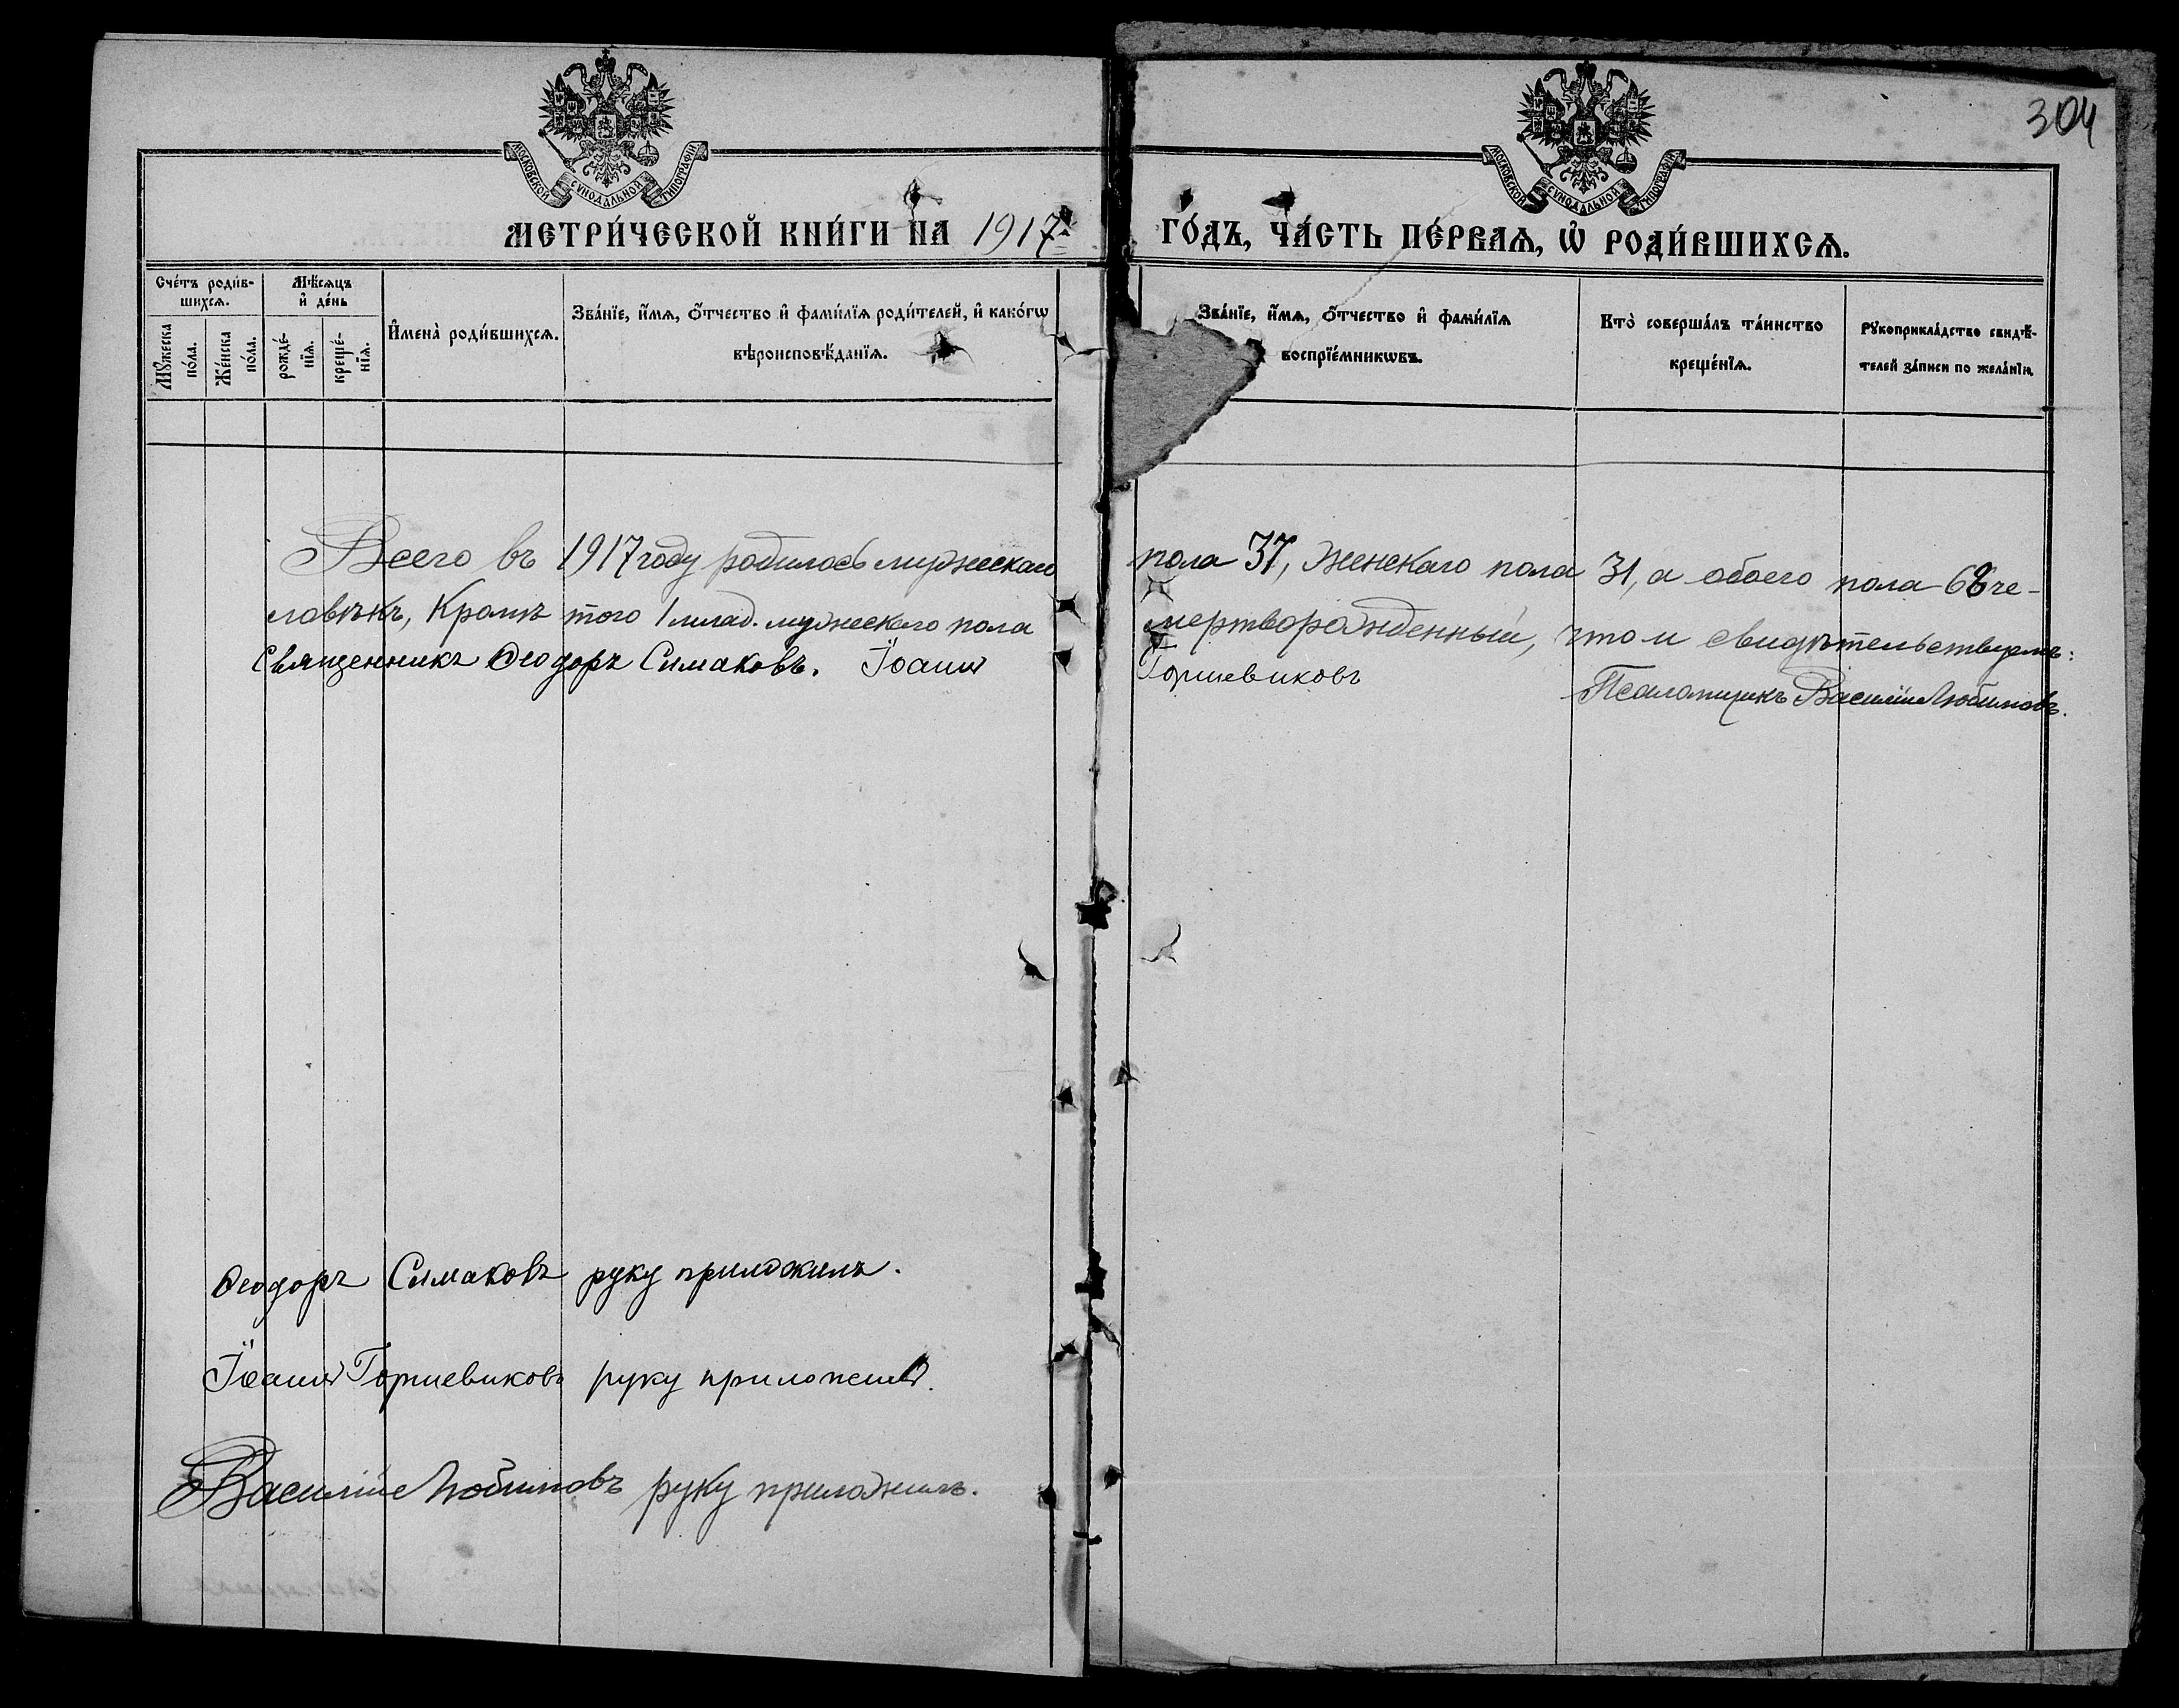 304
МОСКОВСКОЙ СѴНОДАЛЬНОЙ ТИПОГРАФІИ
МОСКОВСКОЙ СѴНОДАЛЬНОЙ ТИПОГРАФІИ
МЕТРИ́ЧЕСКОЙ КНИ́ГИ НА 1917 ГО́ДЪ, ЧА́СТЬ ПЕ́РВАѦ, Ѡ҆ РОДИ́ВШИХСѦ.
Сче́тъ роди́в-
шихсѧ.
Мꙋ́жеска
по́ла.
Же́нска
по́ла.
Мѣ́сѧцъ
и҆ де́нь
рожде́-
нїѧ.
креще́-
нїѧ.
И҆мена̀ роди́вшихсѧ.
Зва́нїе, и҆́мѧ, ѻ҆́тчество и҆ фами́лїѧ роди́телей, и҆ како́гѡ
вѣроисповѣ́данїѧ.
Зва́нїе, и҆́мѧ, ѻ҆́тчество и҆ фами́лїѧ
воспрїе́мникѡвъ.
Кто̀ соверша́лъ та́инство
креще́нїѧ.
Рꙋкоприкла́дство свидѣ́-
телей за́писи по жела́нїю.
Всего въ 1917 году родилось мужескаго пола 37, женскаго пола 31, а обоего пола 68 че-
ловѣкъ, кромѣ того 1 млад. мужескаго пола мертворожденный, что и свидѣтельствуемъ:
Священникъ Ѳеодоръ Симаковъ. Іоаннъ Горшевиковъ
Псаломщикъ Василій Любимовъ.
Ѳеодоръ Симаковъ руку приложилъ.
Іоаннъ Горшевиковъ руку приложилъ.
Василій Любимовъ руку приложилъ.